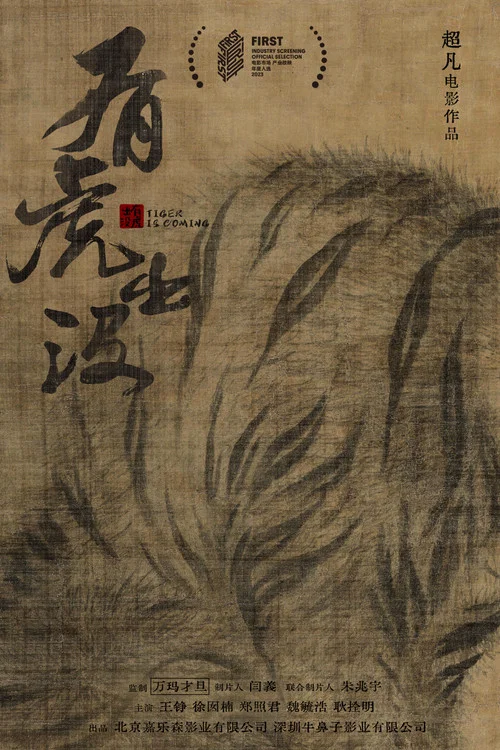 FIRST
INDUSTRY SCREENING
OFFICIAL SELECTION
电影市场 产业放映
年度入选
2023
超凡电影作品
有虎出没
TIGER
IS COMING
监制 万玛才旦 制片人 闫義 联合制片人 朱兆宇
主演 王铮 徐囡楠 郑照君 魏毓浩 耿拴明
出品 北京嘉乐森影业有限公司 深圳牛鼻子影业有限公司